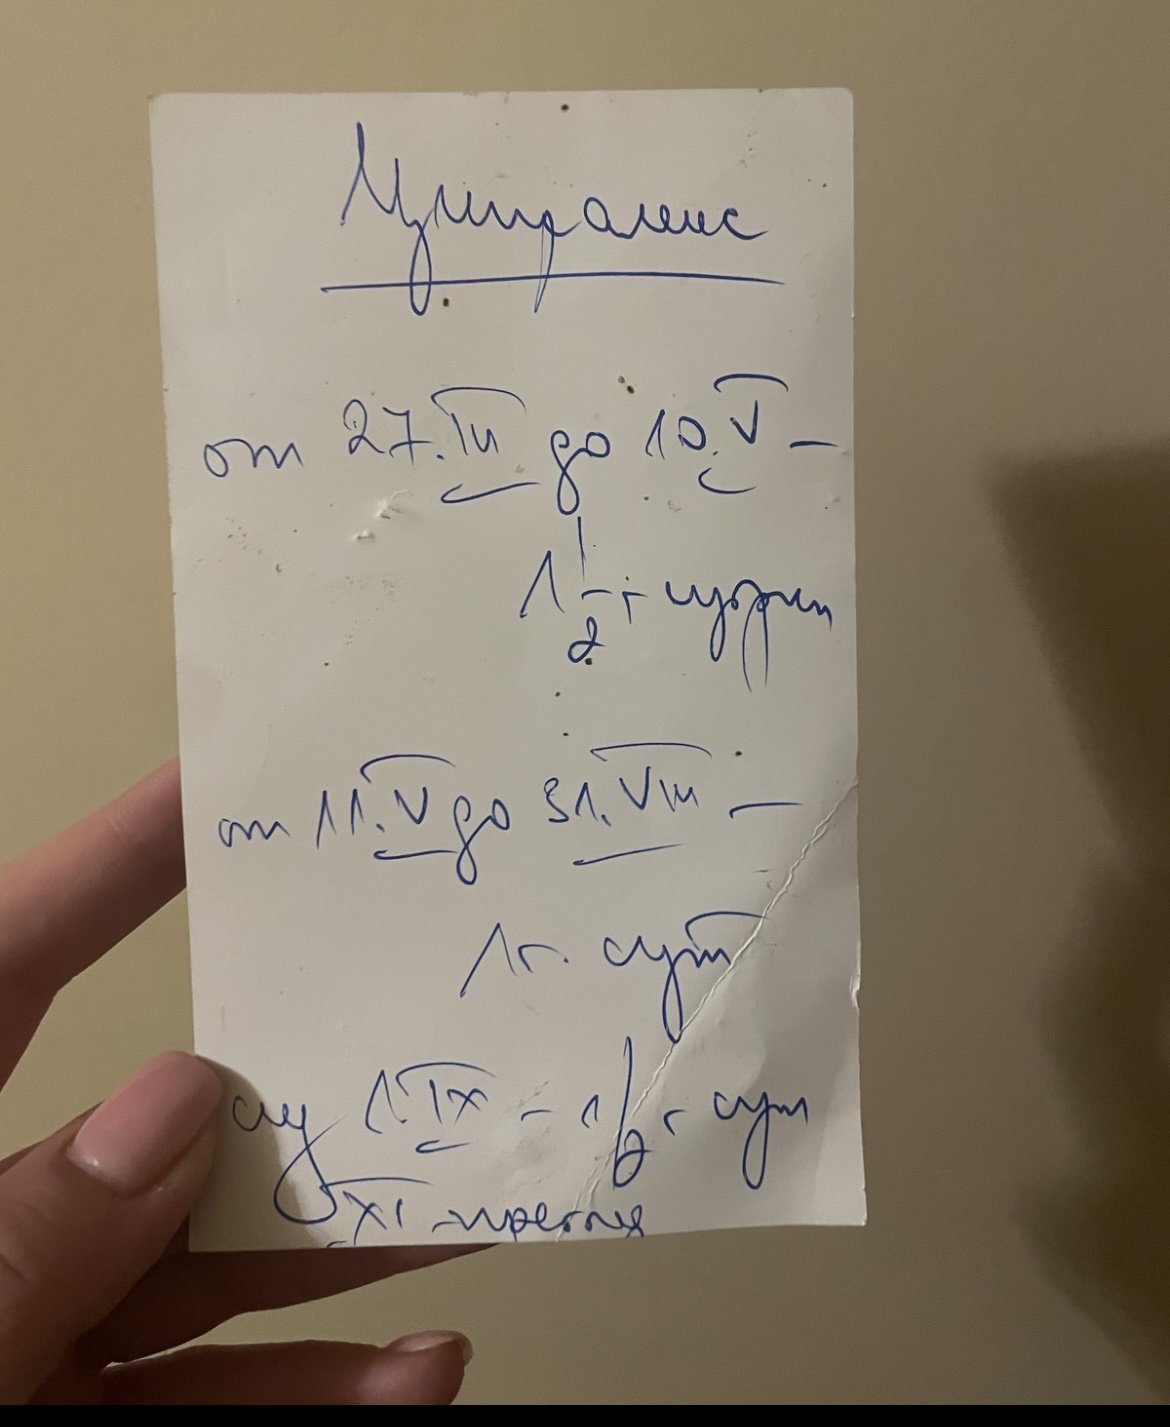 Ципралекс
от 27.III до 10.V –
1 1/2 т сутрин
от 11.V до 31.VIII –
1т. сут
сл 1.IX – 1/2 т сут
XI -преглед